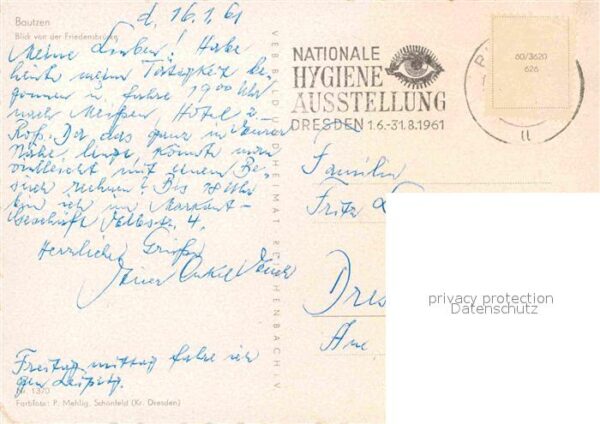 Bautzen
Blick von der Friedensbrücke
d. 16.1.61
Meine Lieben! Habe
heute meine Tätigkeit be-
gonnen u. fahre 1900 Uhr
nach Meißen, Hotel z.
Roß. Da das ganz in Eurer
Nähe liegt, könnte man
vielleicht mit einem Be-
such rechnen? Bis 18 Uhr
bin ich im
Geschäft 4.
Herzliche Grüße
Euer Onkel
Freitag mittag fahre ich
gen Leipzig.
1370
Farbfoto: P. Mehlig, Schönfeld (Kr. Dresden)
VEB BILD UND HEIMAT REICHENBACH I. V.
NATIONALE
HYGIENE
AUSSTELLUNG
DRESDEN 1.6.-31.8.1961
60/3620
626
Familie
Fritz
Dres
Am
privacy protection
Datenschutz